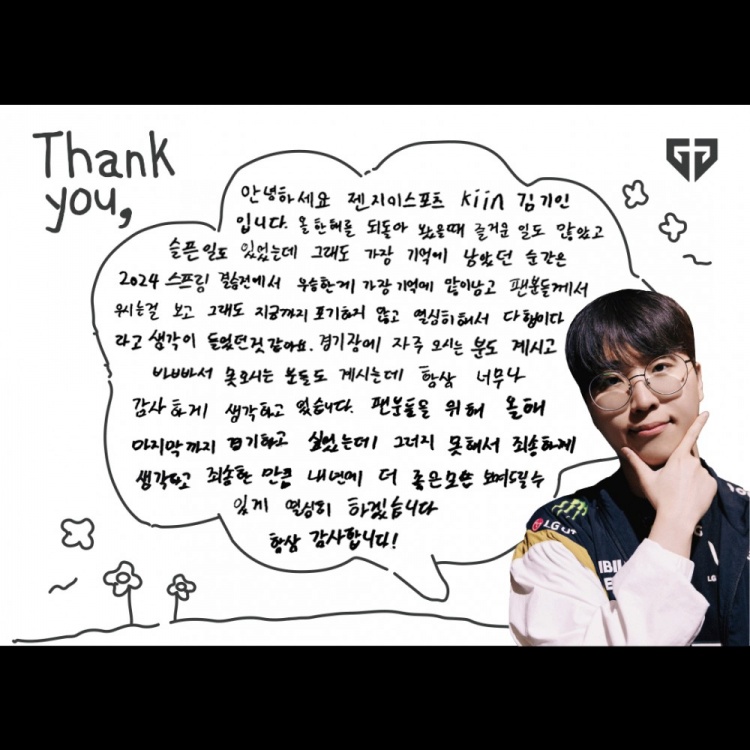 Thank
you,
안녕하세요 젠지이스포츠 Kiin 김기인
입니다. 올 한해를 되돌아 봤을때 즐거운 일도 많았고
슬픈일도 있었는데 그래도 가장 기억에 남았던 순간은
2024 스프링 결승전에서 우승한게 가장 기억에 많이남고 팬분들께서
우시는걸 보고 그래도 지금까지 포기하지 않고 열심히해서 다행이다
라고 생각이 들었던것 같아요. 경기장에 자주 오시는 분도 계시고
바빠서 못오시는 분들도 계시는데 항상 너무나
감사하게 생각하고 있습니다. 팬분들을 위해 올해
마지막까지 경기하고 싶었는데 그러지 못해서 죄송하게
생각하고 죄송한 만큼 내년에 더 좋은모습 보여드릴수
있게 열심히 하겠습니다
항상 감사합니다!
LG U+
LG